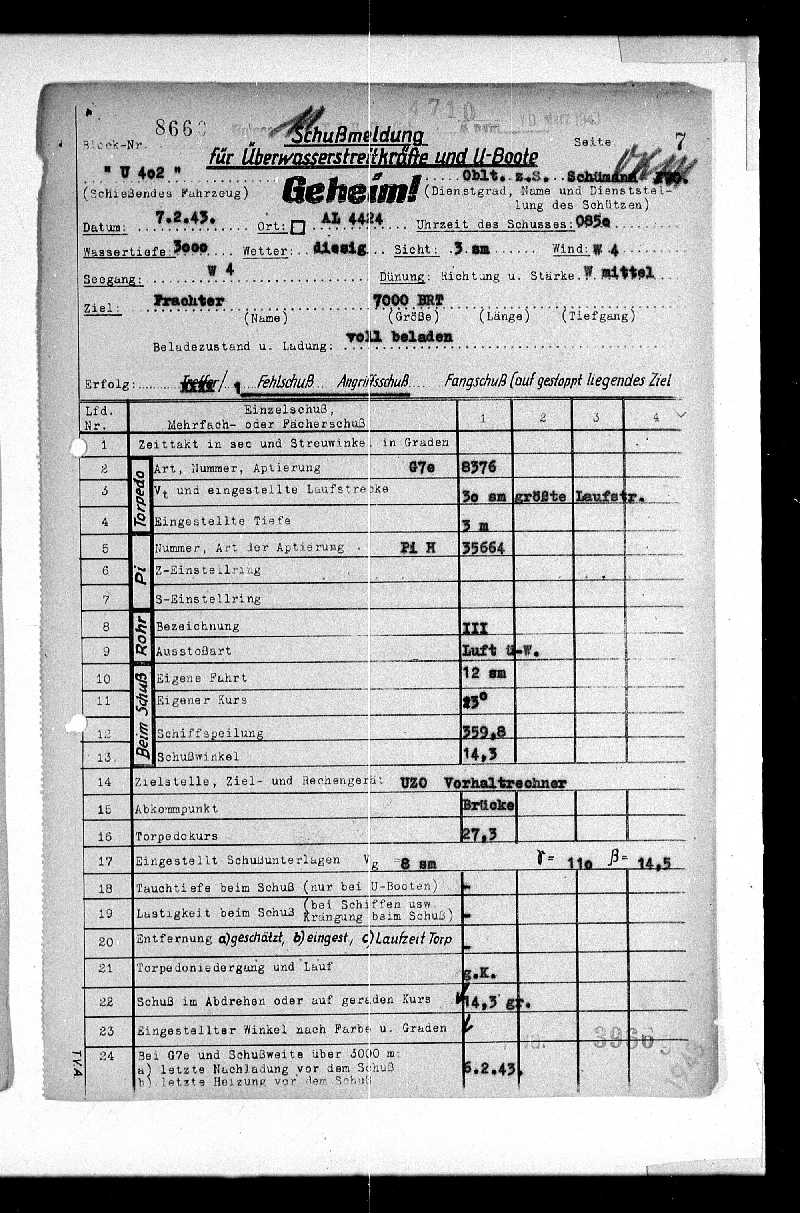 4710
Block-Nr. 8660
Schußmeldung
Seite 7
für Überwasserstreitkräfte und U-Boote
"U 4o2" Oblt. z.S. Schümann
(Schießendes Fahrzeug) Geheim! (Dienstgrad, Name und Dienststel-
lung des Schützen)
Datum: 7.2.43. Ort: AL 4424 Uhrzeit des Schusses: 085o
Wassertiefe: 3ooo Wetter: diesig Sicht: 3 sm Wind: W 4
Seegang: W 4 Dünung: Richtung u. Stärke. W mittel
Ziel: Frachter 7000 BRT
(Name) (Größe) (Länge) (Tiefgang)
Beladezustand u. Ladung: voll beladen
Erfolg: Treffer/ 1 Fehlschuß Angriffsschuß Fangschuß (auf gestoppt liegendes Ziel
Lfd. Nr. Einzelschuß, Mehrfach- oder Fächerschuß 1 2 3 4
1 Zeittakt in sec und Streuwinkel in Graden
Torpedo
2 Art, Nummer, Aptierung G7e 8376
3 Vt und eingestellte Laufstrecke 3o sm größte Laufstr.
4 Eingestellte Tiefe 3 m
Pi
5 Nummer, Art der Aptierung Pi H 35664
6 Z-Einstellring
7 S-Einstellring
Rohr
8 Bezeichnung III
9 Ausstoßart Luft ü.W.
Beim Schuß
10 Eigene Fahrt 12 sm
11 Eigener Kurs 13°
12 Schiffspeilung 359,8
13 Schußwinkel 14,3
14 Zielstelle, Ziel- und Rechengerät UZO Vorhaltrechner
15 Abkommpunkt Brücke
16 Torpedokurs 27,3
17 Eingestellt Schußunterlagen Vg = 8 sm γ = 11o β = 14,5
18 Tauchtiefe beim Schuß (nur bei U-Booten) -
19 Lastigkeit beim Schuß (bei Schiffen usw. Krängung beim Schuß) -
20 Entfernung a) geschätzt, b) eingest., c) Laufzeit Torp -
21 Torpedoniedergang und Lauf g.K.
22 Schuß im Abdrehen oder auf geraden Kurs 14,3 gr.
23 Eingestellter Winkel nach Farbe u. Graden
24 Bei G7e und Schußweite über 3000 m:
a) letzte Nachladung vor dem Schuß 6.2.43.
b) letzte Heizung vor dem Schuß
TVA
3966
1943